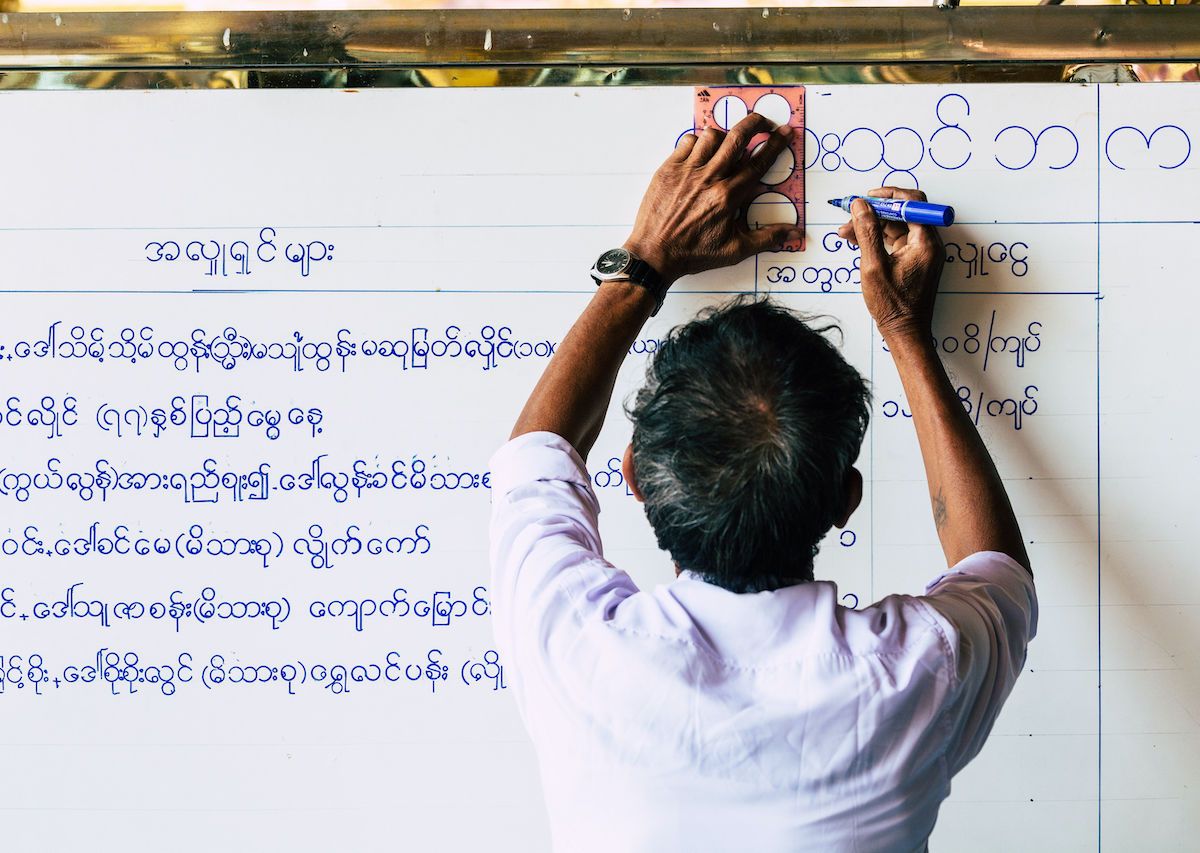 းသွင် ဘ က
အလှူရှင်များ
အတွက် လှူငွေ
ဒေါ်သိမ့်သိမ့်ထွန်း(သ္မီး)မသုံထွန်းမဆုမြတ်လှိုင်(၁၀)
ဝိ/ကျပ်
င်လှိုင် (၇၇)နှစ်ပြည့်မွေနေ့
ဝိ/ကျပ်
(ကွယ်လွန်)အားရည်စူး၍.ဒေါ်လွန်းခင်မိသားစု
ဝင်း,ဒေါ်ခင်မေ(မိသားစု) လွှိုက်ကော် ၁
င်,ဒေါ်သူဇာစန်း(မိသားစု) ကျောက်မြောင်း
င့်စိုး,ဒေါ်စိုးစိုးလွင် (မိသားစု)ရွှေလင်ပန်း (လှို